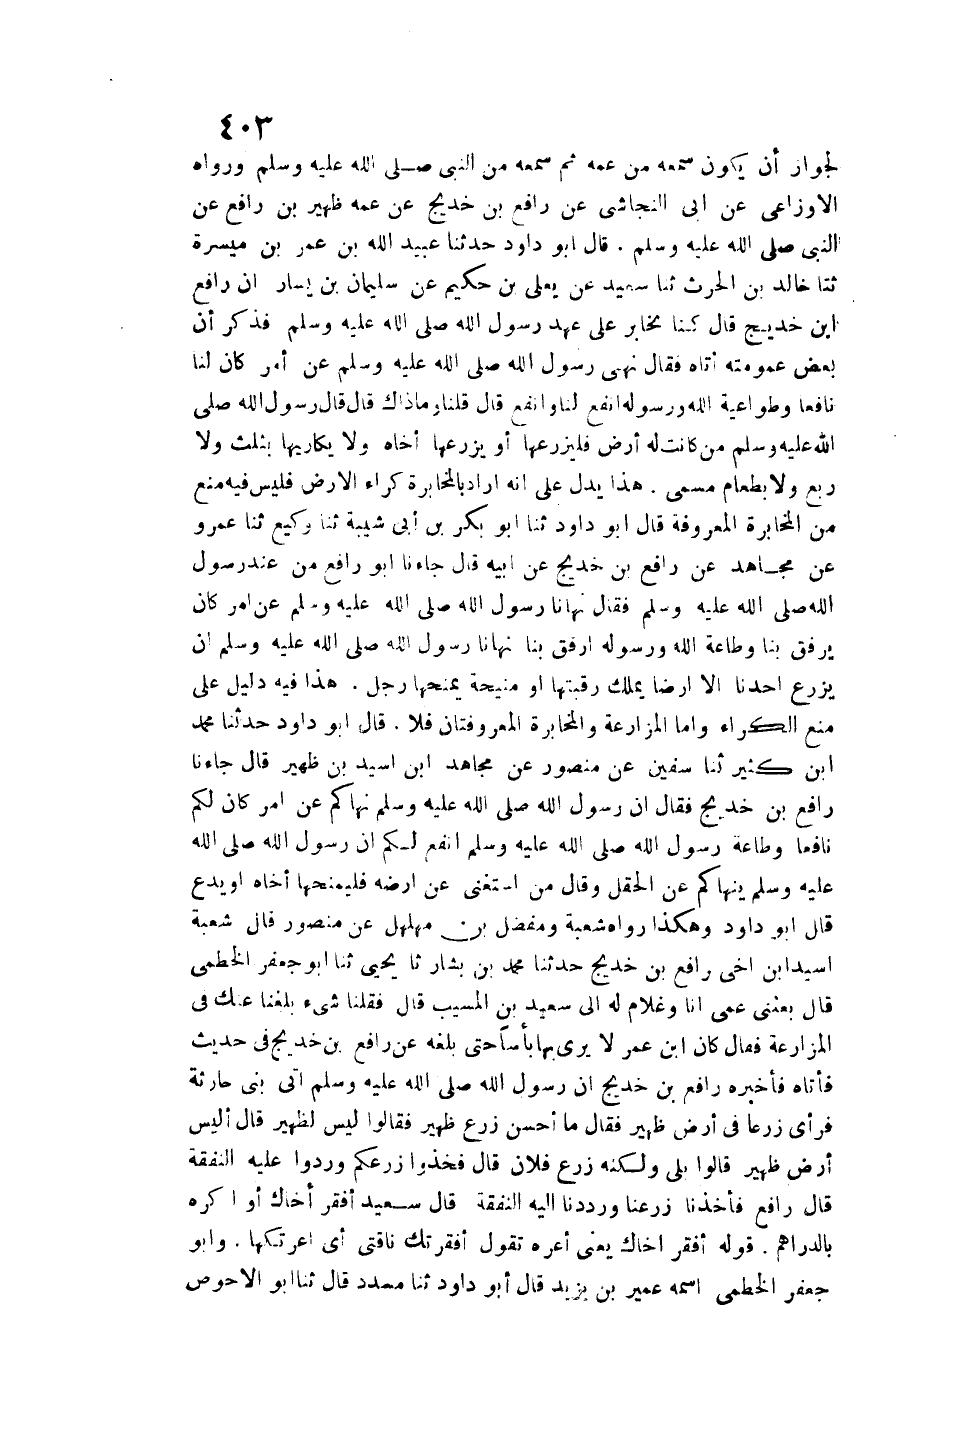 ٤٠٣
لجواز أن يكون سمعه من عمه ثم سمعه من النبى صلى الله عليه وسلم ورواه
الاوزاعى عن ابى النجاشى عن رافع بن خديج عن عمه ظهير بن رافع عن
النبى صلى الله عليه وسلم . قال ابو داود حدثنا عبيد الله بن عمر بن ميسرة
ثنا خالد بن الحرث ثنا سعيد عن يعلى بن حكيم عن سليمان بن يسار ان رافع
ابن خديج قال كنا نخابر على عهد رسول الله صلى الله عليه وسلم فذكر أن
بعض عمومته أتاه فقال نهى رسول الله صلى الله عليه وسلم عن أمر كان لنا
نافعا وطواعية الله ورسوله انفع لنا وانفع قال قلنا وماذاك قال قال رسول الله صلى
الله عليه وسلم من كانت له أرض فليزرعها أو يزرعها أخاه ولا يكاريها بثلث ولا
ربع ولا بطعام مسمى . هذا يدل على انه اراد بالمخابرة كراء الارض فليس فيه منع
من المخابرة المعروفة قال ابو داود ثنا ابو بكر بن أبى شيبة ثنا وكيع ثنا عمرو
عن مجاهد عن رافع بن خديج عن ابيه قال جاءنا ابو رافع من عند رسول
الله صلى الله عليه وسلم فقال نهانا رسول الله صلى الله عليه وسلم عن امر كان
يرفق بنا وطاعة الله ورسوله ارفق بنا نهانا رسول الله صلى الله عليه وسلم ان
يزرع احدنا الا ارضا يملك رقبتها او منيحة يمنحها رجل . هذا فيه دليل على
منع الكراء واما المزارعة والمخابرة المعروفتان فلا . قال ابو داود حدثنا محمد
ابن كثير ثنا سفين عن منصور عن مجاهد ابن اسيد بن ظهير قال جاءنا
رافع بن خديج فقال ان رسول الله صلى الله عليه وسلم نهاكم عن امر كان لكم
نافعا وطاعة رسول الله صلى الله عليه وسلم انفع لكم ان رسول الله صلى الله
عليه وسلم ينهاكم عن الحقل وقال من استغنى عن ارضه فليمنحها أخاه او يدع
قال ابو داود وهكذا رواه شعبة ومفضل بن مهلهل عن منصور قال شعبة
اسيد ابن اخى رافع بن خديج حدثنا محمد بن بشار ثا يحيى ثنا ابو جعفر الخطمى
قال بعثنى عمى انا وغلام له الى سعيد بن المسيب قال فقلنا شىء بلغنا عنك فى
المزارعة فقال كان ابن عمر لا يرى بها بأسا حتى بلغه عن رافع بن خديج فى حديث
فأتاه فأخبره رافع بن خديج ان رسول الله صلى الله عليه وسلم اتى بنى حارثة
فرأى زرعا فى أرض ظهير فقال ما أحسن زرع ظهير فقالوا ليس لظهير قال أليس
أرض ظهير قالوا بلى ولكنه زرع فلان قال فخذوا زرعكم وردوا عليه النفقة
قال رافع فأخذنا زرعنا ورددنا اليه النفقة قال سعيد أفقر أخاك أو اكره
بالدراهم . قوله أفقر اخاك يعنى أعره تقول أفقرتك ناقتى أى اعرتكها . وابو
جعفر الخطمى اسمه عمير بن يزيد قال أبو داود ثنا مسدد قال ثنا ابو الاحوص